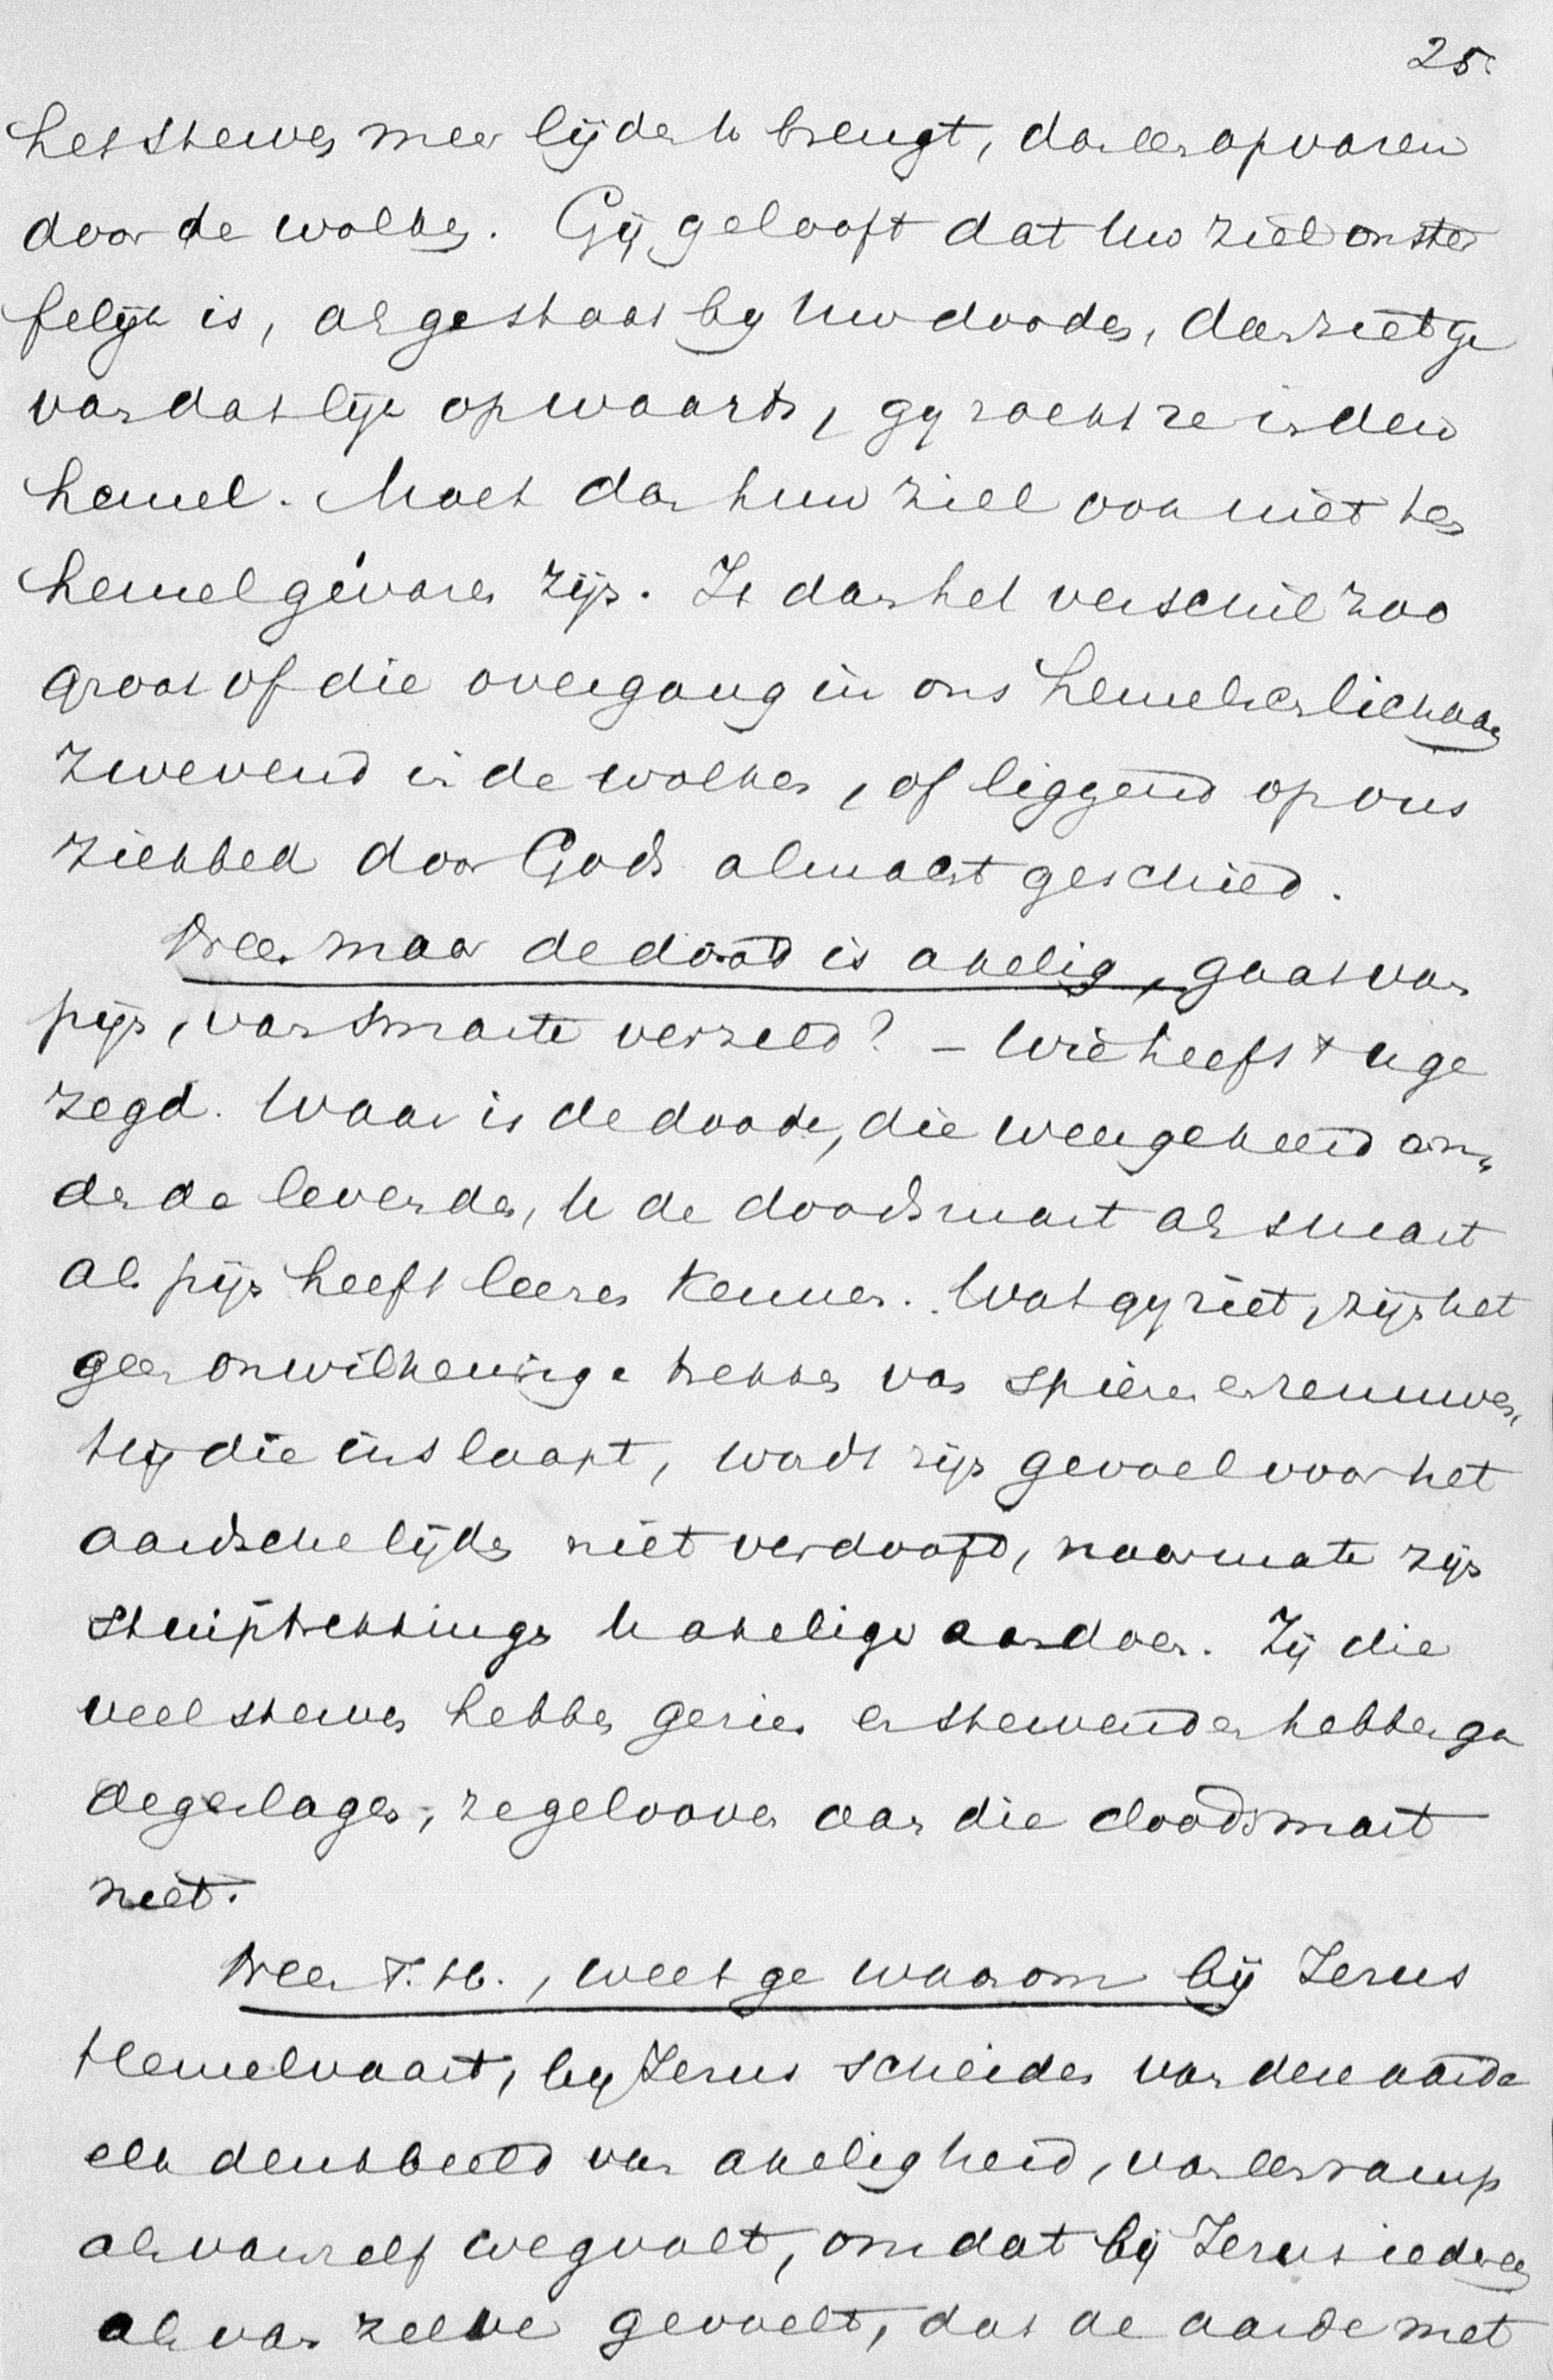 25.
het sterven meer lijden te brengt, dan een opvaren
door de wolken. Gij gelooft dat Uw ziel onster
felijk is, als ge staat bij Uw dooden, dan ziet ge
van dat lijk opwaarts, gij zoekt ze in den
hemel. Moet dan hun ziel ook niet ten
hemel gevaren zijn. Is dan het verschil zoo
groot of die overgang in ons hemelsch lichaam
zwevend in de wolken, of liggend op ons
ziekbed door Gods almacht geschied.
Neen maar de dood is akelig, gaat van
pijn, van smarte verzeld? – Wie heeft 't u ge
zegd. Waar is de doode, die weergekeerd on„
der de levenden, U de doodsmart als smart
als pijn heeft leeren kennen. Wat gij ziet, zijn het
geen onwillekeurige trekken van spieren en zenuwen,
Hij die inslaapt, wordt zijn gevoel voor het
aardsche lijden niet verdoofd, naarmate zijn
stuiptrekkingen U akeliger aandoen. Zij die
veel sterven hebben gezien en stervenden hebben ga
degeslagen, ze gelooven aan die doodsmart
niet.
Neen T. H., weet ge waarom bij Jezus
Hemelvaart, bij Jezus scheiden van deze aarde
elk denkbeeld van akeligheid, van een ramp
als vanzelf wegvalt, omdat bij Jezus iedereen
als van zelve gevoelt, dat de aarde met